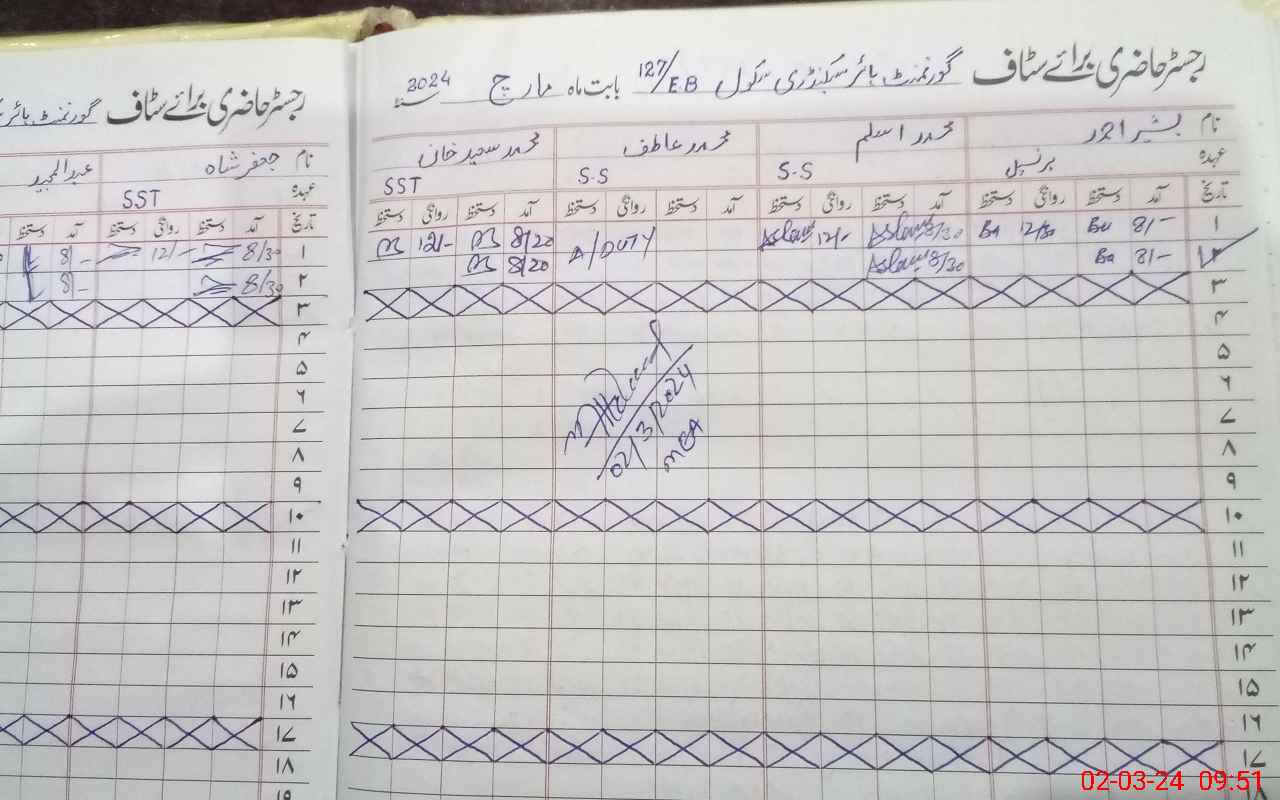 رجسٹر حاضری برائے سٹاف گورنمنٹ ہائر سیکنڈری سکول 127/E.B بابت ماہ مارچ 2024
نام بشیر احمد محمد اسلم محمد عاطف محمد سعید خان
عہدہ پرنسپل S.S S.S SST
تاریخ آمد دستخط روانگی دستخط آمد دستخط روانگی دستخط آمد دستخط روانگی دستخط آمد دستخط روانگی دستخط
۱ 8/- Ba 12/30 Ba 8/30 Aslam 12/- Aslam A/DUTY 8/20 12/-
۲ 8/- Ba 8/30 Aslam 8/20
۳
۴
۵
۶
۷
۸
۹
۱۰
۱۱
۱۲
۱۳
۱۴
۱۵
۱۶
۱۷
02/3/2024
MEA
رجسٹر حاضری برائے سٹاف گورنمنٹ ہائر
نام جعفر شاہ عبدالمجید
عہدہ SST
تاریخ آمد دستخط روانگی دستخط آمد دستخط
۱ 8/30 12/- 8/-
۲ 8/30 8/-
۳
۴
۵
۶
۷
۸
۹
۱۰
۱۱
۱۲
۱۳
۱۴
۱۵
۱۶
۱۷
۱۸
۱۹
02-03-24 09:51